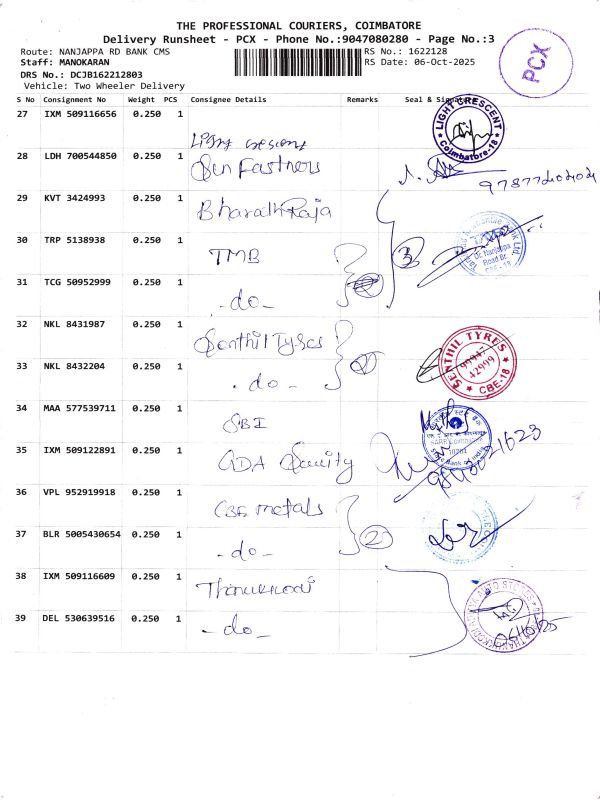 THE PROFESSIONAL COURIERS, COIMBATORE
Delivery Runsheet - PCX - Phone No.:9047080280 - Page No.:3
Route: NANJAPPA RD BANK CMS RS No.: 1622128
Staff: MANOKARAN RS Date: 06-Oct-2025
DRS No.: DCJB162212803
Vehicle: Two Wheeler Delivery
PCX
S No Consignment No Weight PCS Consignee Details Remarks Seal & Signature
27 IXM 509116656 0.250 1 Light crescent
LIGHT CRESCENT Coimbatore-18
28 LDH 700544850 0.250 1 Sun Fastners
9787720202
29 KVT 3424993 0.250 1 Bharath Raja
30 TRP 5138938 0.250 1 TMB 3
Dr. Nanjappa Road Br. CBE - 18
31 TCG 50952999 0.250 1 - do -
32 NKL 8431987 0.250 1 Senthil Tyres
SENTHIL TYRES 99947 42999 CBE-18
33 NKL 8432204 0.250 1 - do -
34 MAA 577539711 0.250 1 SBI
35 IXM 509122891 0.250 1 GDA Security
9843021623
36 VPL 952919918 0.250 1 CBE metals
37 BLR 5005430654 0.250 1 - do - 2
38 IXM 509116609 0.250 1 Thanukkodi
39 DEL 530639516 0.250 1 - do -
06/10/25